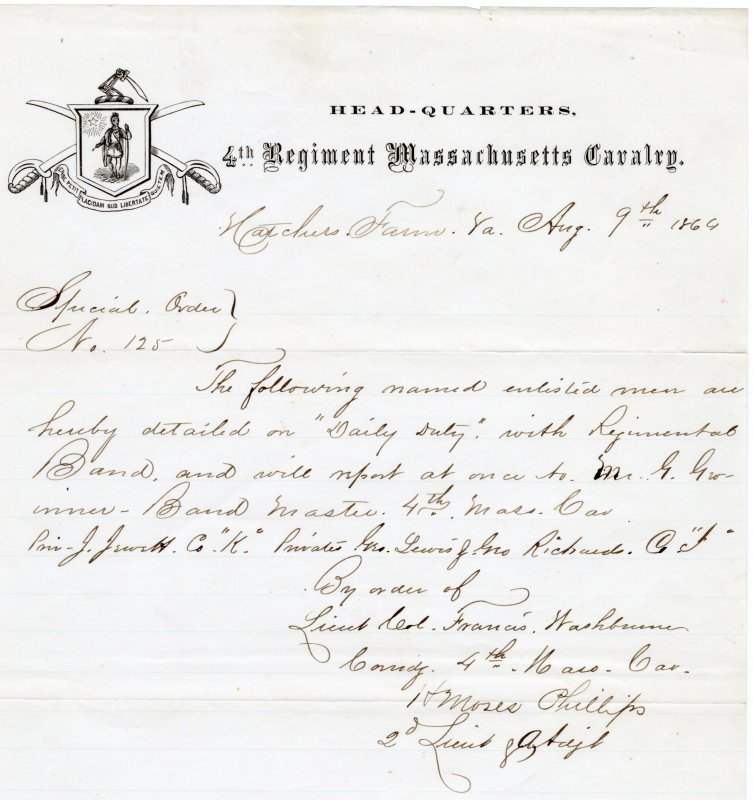 HEAD-QUARTERS,
4th Regiment Massachusetts Cavalry.
ENSE PETIT PLACIDAM SUB LIBERTATE QUIETEM
Hatchers. Farm. Va. Aug. 9th 1864
Special. Order
No. 125
The following named enlisted men are
hereby detailed on "Daily Duty". with Regimental
Band, and will report at once to. Mr. G. Gro-
inner - Band Master. 4th. Mass. Cav
Priv - J. Jewett. Co. "K." Privates Geo. Lewis & Geo Richards. Co "I"
By order of
Lieut Col. Francis. Washburne
Comdg. 4th. Mass. Cav.
H Moses Phillips
2d Lieut & Adjt